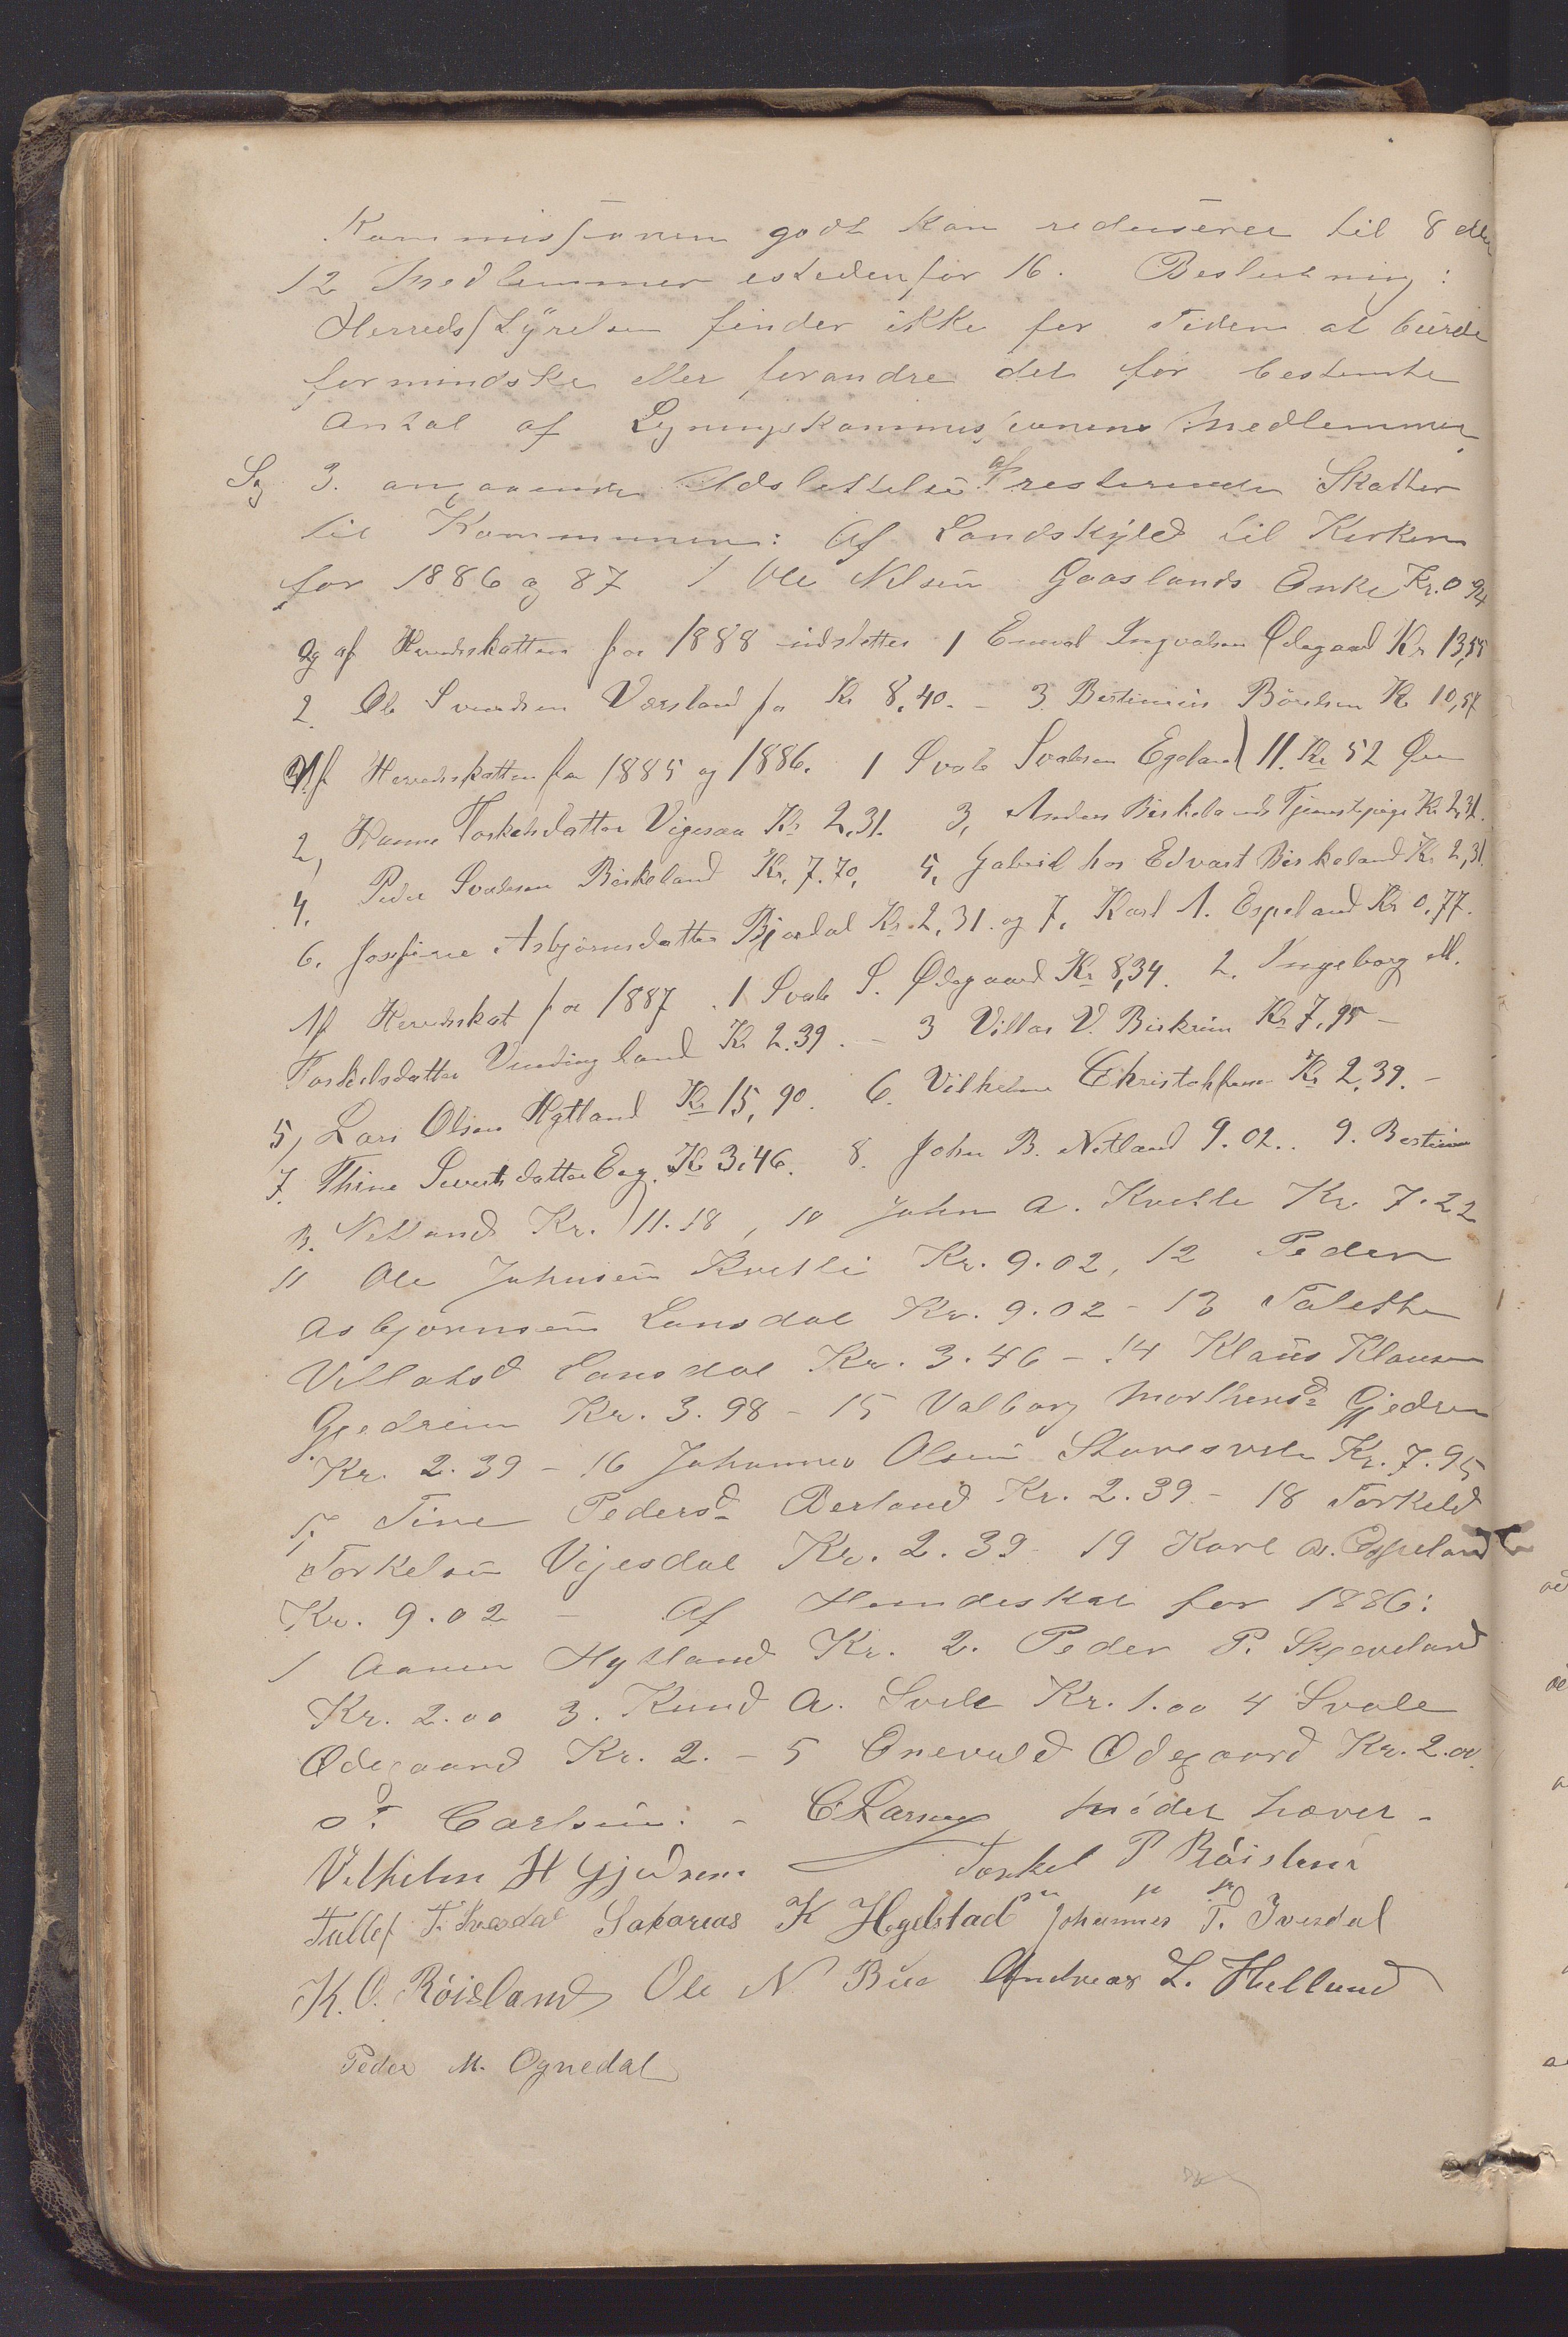 Kommissionen godt kan reduseres til 8 eller
12 Medlemmer istedenfor 16. Beslutning:
Herredsstyrelsen finder ikke for Tiden at burde
formindske eller forandre det før bestemte
Antal af Ligningskommissionens Medlemmer
Sag 3. angaaende Udslettelse af resterende Skatter
til Kommunen: Af Landskyld til Kirken
for 1886 og 87 1 Ole Nilsen Gaaslands Enke Kr. 0 94
Og af Herredsskatten for 1888 udslettes 1 Enevald Ingvalsen Ødegaard Kr 13,55
2. Ole Svendsen Vørsland for Kr 8,40. - 3. Bertinius Börildsen Kr 10,57
Af Herredsskatten for 1885 og 1886. 1 Svale Svalesen Egeland 11. Kr 52 Øre
2, Hanne Torkelsdatter Vigesaa Kr 2,31. 3, Anders Birkelands Tjenestepige Kr 2,31.
4. Peder Svalesen Birkeland Kr. 7.70, 5, Gabriel hos Edvart Birkeland Kr 2,31.
6. Josefine Asbjørnsdatter Bjordal Kr 2,31. og 7. Karl A. Espeland Kr 0,77.
Af Herredsskat for 1887. 1 Svale S. Ødegaard Kr 8,34. 2. Ingeborg M.
Torkelsdatter Kr 2.39. - 3 Villas V. Birkrim Kr 7,95 -
5, Lars Olsen Hytland Kr 15,90. 6. Vilhelm Christoffersen Kr 2,39. -
7. Thine Sivertsdatter Eeg. Kr 3,46. 8. John B. Netland 9.02.. 9. Bertinius
B. Netland Kr. 11.18, 10 John A. Kvetle Kr. 7.22
11 Ole Johnsen Kvetli Kr. 9.02, 12 Peder
Asbjørnsen Lansdal Kr. 9.02 - 13 Talette
Villatsd Lansdal Kr. 3.46 - 14 Klaus Klausen
Gjedrem Kr. 3.98 - 15 Valborg Morthensd Gjedrem
Kr. 2.39 - 16 Johannes Olsen Kr. 7.95
17 Tine Pedersd Berland Kr. 2.39 - 18 Torkeld
Torkelsen Vigesdal Kr. 2.39 - 19 Karl A. Espeland
Kr. 9.02 - Af Hundeskat for 1886:
1 Aanen Hytland Kr. 2. Peder P. Skjeveland
Kr. 2.00 3. Knud A. Svele Kr. 1.00 4 Svale
Ødegaard Kr. 2. - 5 Enevald Ødegaard Kr. 2.00.
O. T. Carlsen. - C Larsen Mødet hævet -
Vilhelm H Gjedrem Torkel P Røisland
Tallef T. Ivesdal Sakarias K Hegelstad Johannes P. Ivesdal
K. O. Røisland Ole N Bue Andreas L. Hellund
Peder M. Ognedal